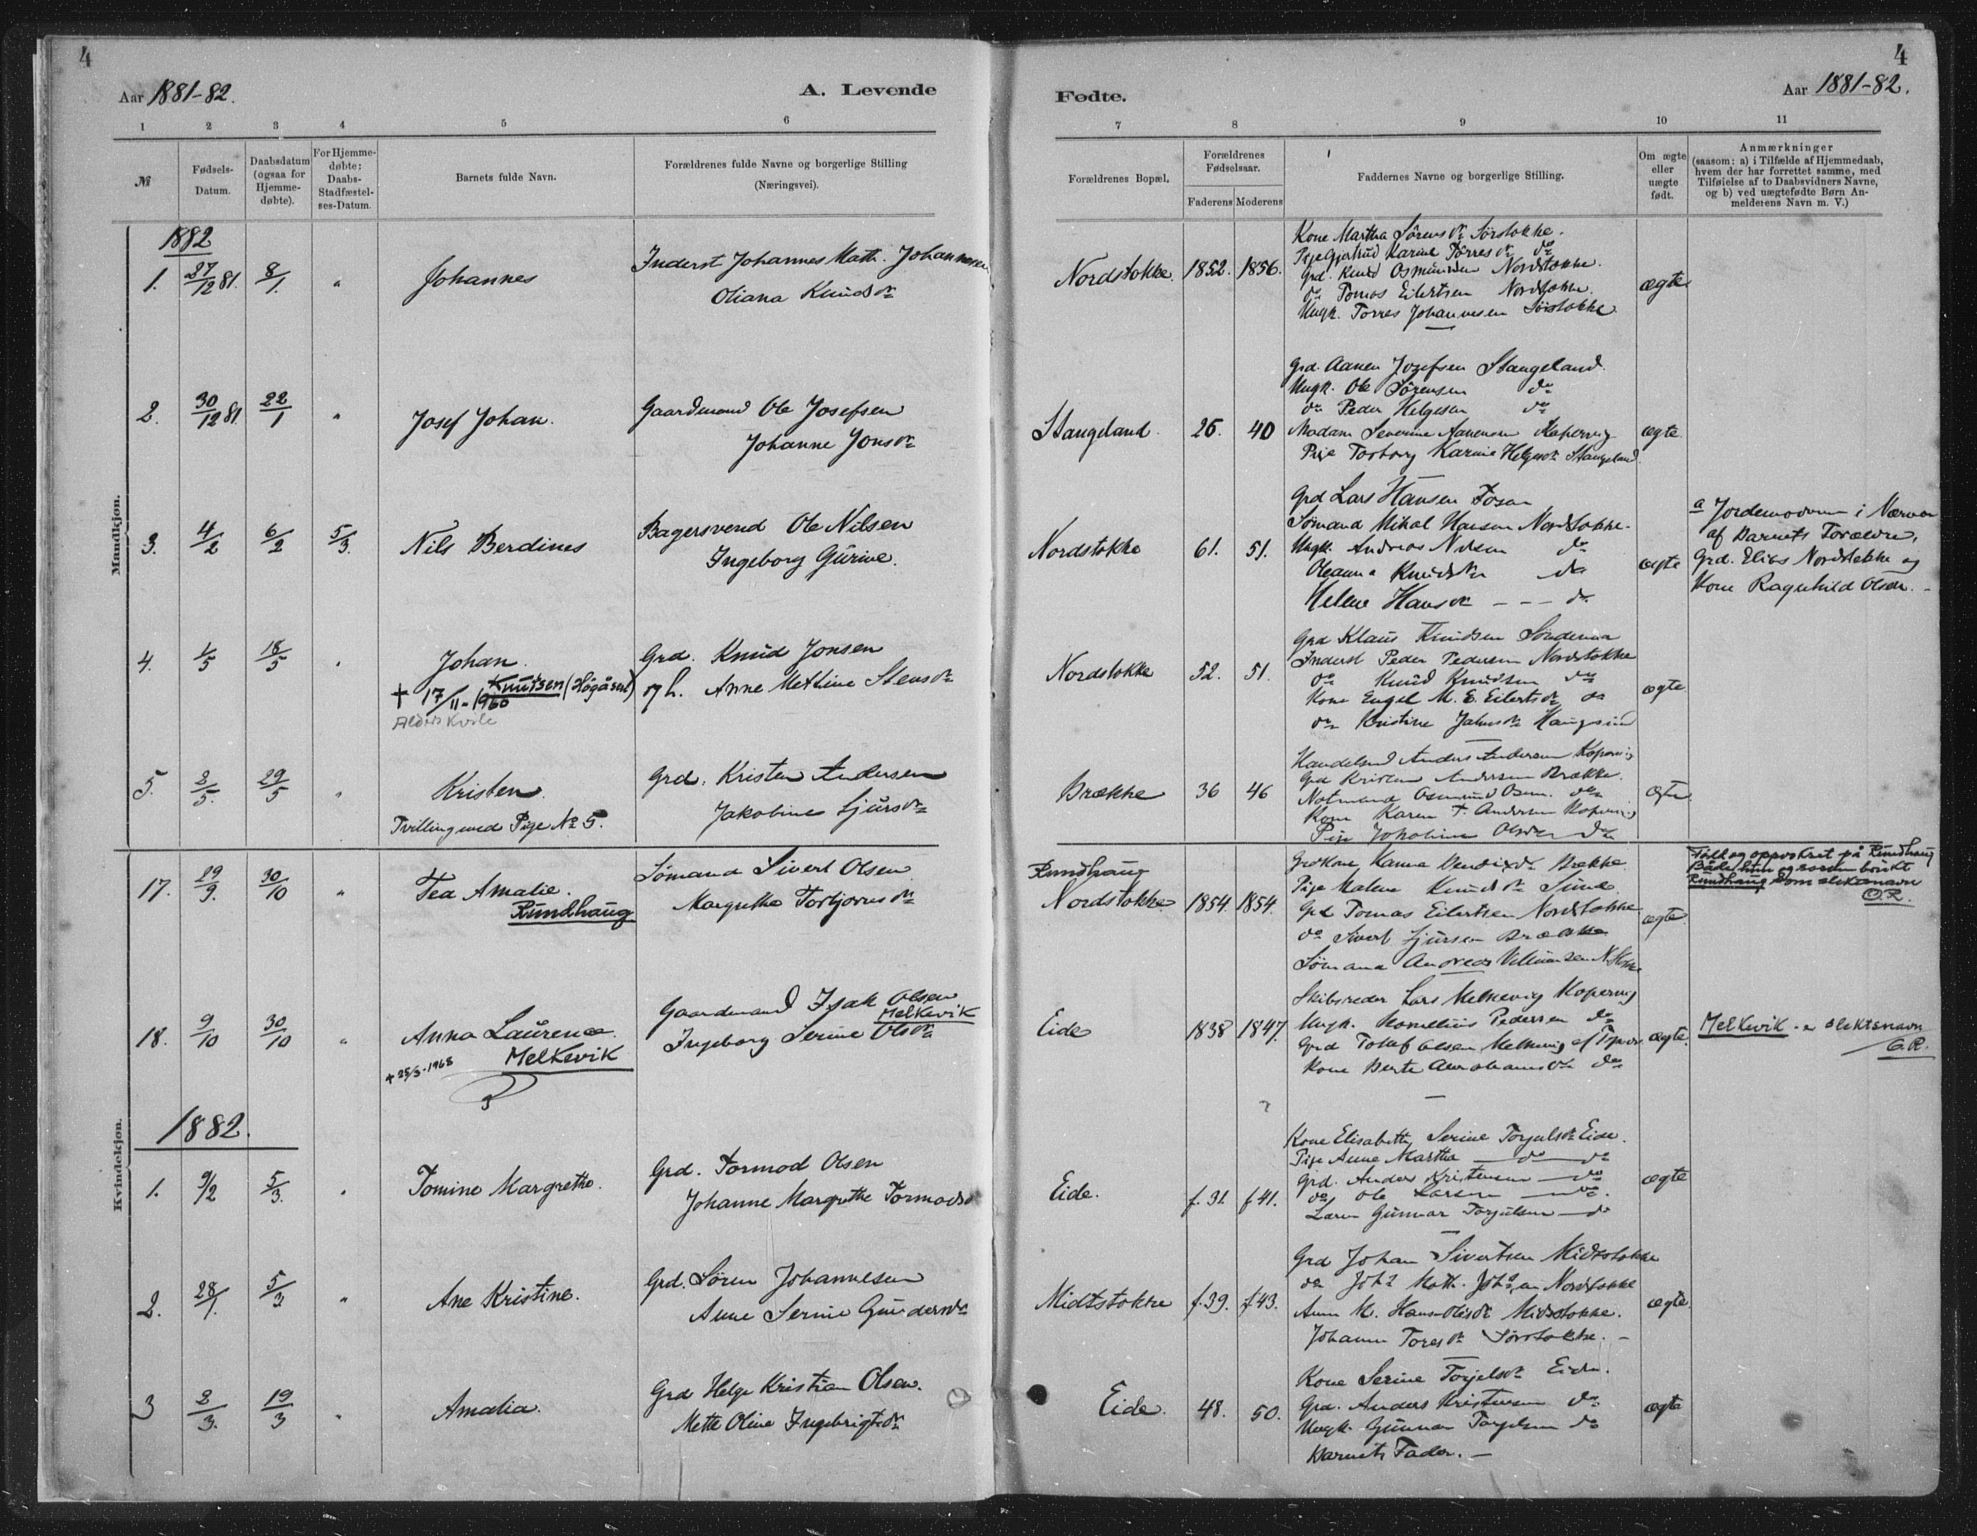 4
Aar 1881-82.
A. Levende
1 2 3 4 5 6
№
Fødsels-Datum.
Daabsdatum (ogsaa for Hjemme-døbte).
For Hjemme-døbte: Daabs-Stadfæstel-ses-Datum.
Barnets fulde Navn.
Forældrenes fulde Navne og borgerlige Stilling
(Næringsvei).
Mandkjøn.
1882
1. 27/12 81. 8/1. " Johannes
Inderst Johannes Math. Johannesen
Oliana Knudsdr
2. 30/12 81. 22/1 " Josef Johan.
Gaardmand Ole Josefsen
Johanne Jonsdr
3. 4/2 6/2 5/3. Nils Berdines
Bagersvend Ole Nilsen
Ingeborg Gurine.
4. 1/5 18/5 " Johan
Knutsen (Høgåsen)
+ 17/11-1960
Grd. Knud Jonsen
og h. Anne Mettine Stensdr
5. 2/5. 29/5 " Kristen.
Tvilling med Pige № 5.
Grd. Kristen Andersen
Jakobine Sjursdr
17. 29/9. 30/10 " Tea Amalie.
Rundhaug
Sømand Sivert Olsen
Margrethe Torbjørnsdr
18. 9/10 30/10 " Anna Laurence
Melkevik
+ 25/3-1968
Gaardmand Isak Olsen
Melkevik
Ingeborg Serine Olsdr
Kvindekjøn.
1882.
1. 9/2 5/3. " Tomine Margrethe.
Grd. Tormod Olsen
Johanne Margrethe Tormodsd
2. 28/1. 5/3 " Ane Kristine.
Grd. Søren Johannesen
Anne Serine Gundersdr
3 2/3. 19/3 " Amalia.
Grd Helge Kristian Olsen.
Mette Oline Ingebrigtsdr
4
Fødte.
Aar 1881-82.
7 8 9 10 11
Forældrenes Bopæl.
Forældrenes Fødselsaar.
Faderens Moderens
Faddernes Navne og borgerlige Stilling.
Om ægte eller uægte født.
Anmærkninger
(saasom: a) i Tilfælde af Hjemmedaab,
hvem der har forrettet samme, med
Tilføielse af to Daabsvidners Navne,
og b) ved uægtefødte Børn An-
melderens Navn m. V.)
Nordstokke. 1852. 1856. ægte
Kone Martha Sørensdr Sørstokke.
Pige Gjertrud Karine Torresdr do
Grd. Knud Osmundsen Nordstokke.
do Tomas Eilertsen Nordstokke.
Ungk. Torres Johannesen Sørstokke
Stangeland. 26. 40 ægte
Grd. Aanen Josefsen Stangeland.
Ungk. Ole Sørensen do
do Peder Helgesen do
Madam Severine Aanensen Kopervig
Pige Torborg Karine Helgesdr Stangeland
Nordstokke 61. 51. ægte
Grd Lars Hansen
Sømand Mikal Hansen Nordstokke.
Ungk. Andreas Nilsen do
Oleanna Knudsdr do
Helene Hansdr - - - do
a Jordemoderen i Nærvær
af Barnets Forældre,
Grd. Elias Nordstokke og
Kone Ragnhild Olsdr. -
Nordstokke 52. 51. ægte
Grd Klaus Knudsen
Inderst Peder Pedersen Nordstokke
do Knud Knudsen do
Kone Engel M. E. Eilertsdr do
do Kristine
Brække 36 46 ægte
Handelsmd Anders Andersen Kopervig
Grd Kristen Andersen Brække.
Notmand Osmund Osm. do
Kone Karen T. Andersen Kopervig
Pige Jakobine Olsen do
Rundhaug
Nordstokke 1854. 1854. ægte
Grdkone Brække
Pige Malene Knudsdr
Grd Tomas Eilertsen Nordstokke
do Sivert Sjursen Brække
Sømand Andreas Villumsen N. Stokke
Født og oppvokset på Rundhaug
Både hun og brukt
Rundhaug som slektsnavn
O.R.
Eide 1838 1847. ægte.
Skibsreder Lars Melkevig Kopervig
Ungk. Kornelius Pedersen do
Grd Tollef Olsen Melkevig af
Kone Berte Abrahamsdr do
Melkevik - er slektsnavn
O.R.
Eide. f. 31. f 41. ægte
Kone Elisabeth Serine Torjulsdr Eide.
Pige Anne Martha do do
Grd. Anders Kristensen do
do Ole Larsen do.
Gunnar Torjulsen do
Midtstokke f. 39. f 43. ægte
Grd Johan Sivertsen Midtstokke
do Joh? Math. Nordstokke
Anne M. Hans Olsdr Midtstokke.
Johanne Toresdr Sørstokke. -
Eide. 48. 50. ægte
Kone Serine Torjelsdr Eide.
Grd. Anders Kristensen do
Ungk. Gunnar Torjelsen do
Barnets Fader. -